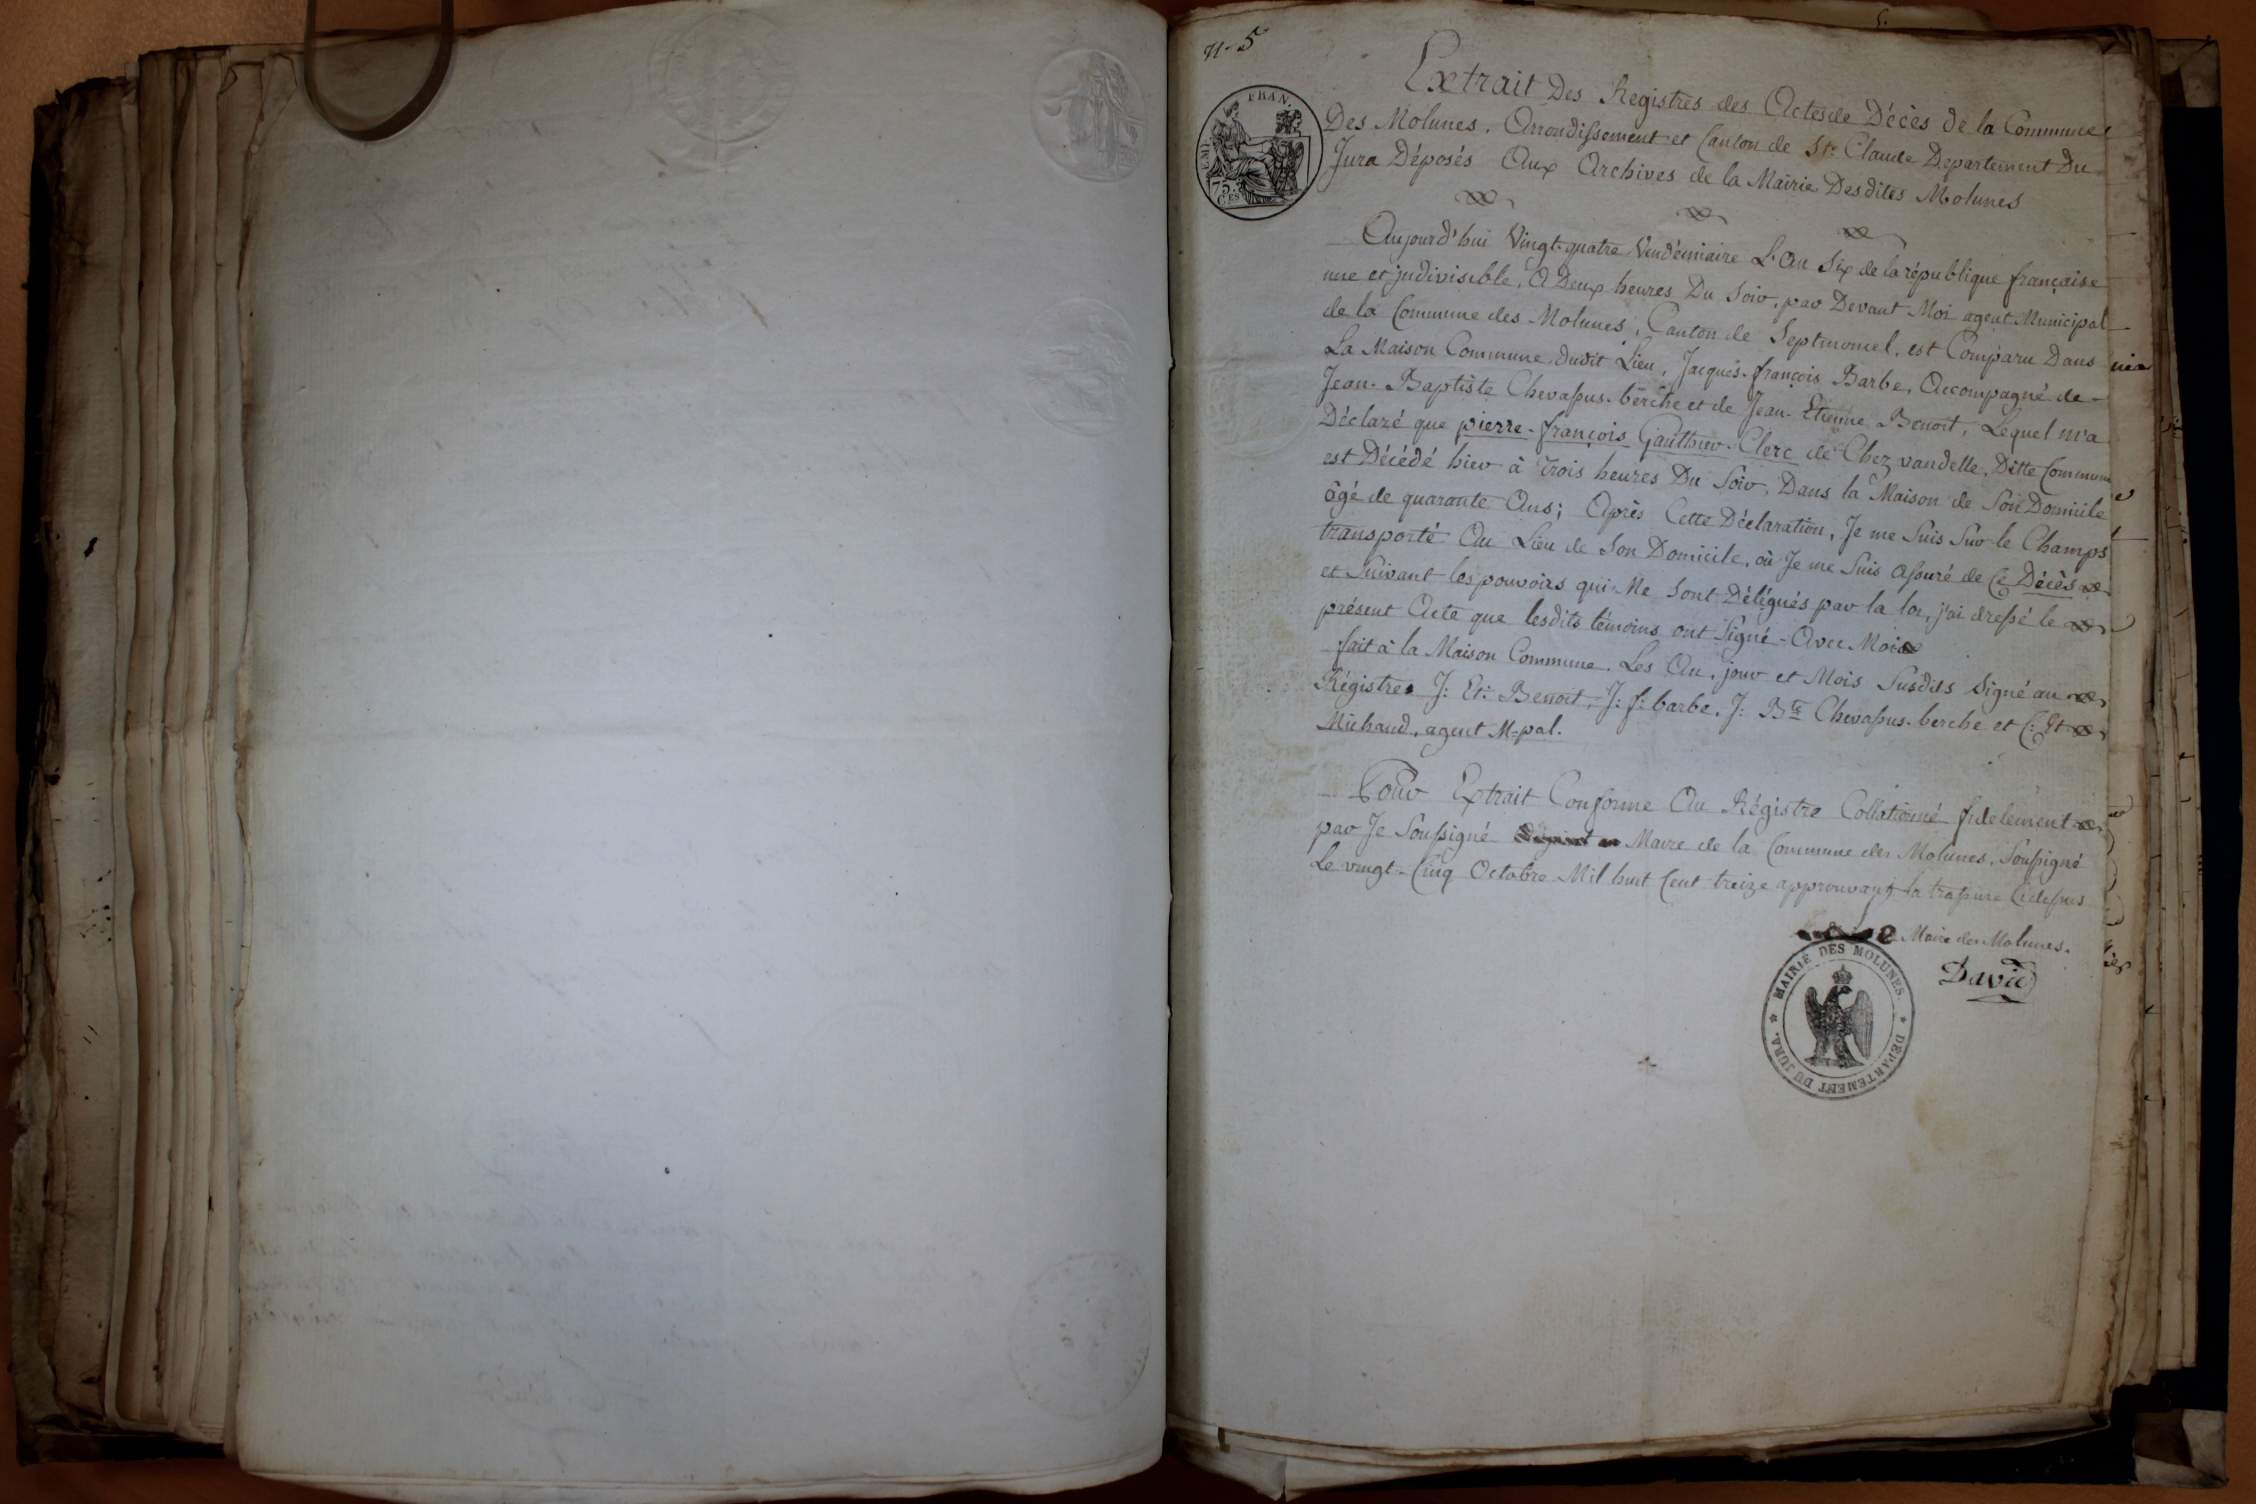 n° 5
Extrait Des Registres des Actes de Décès de la Commune
Des Molunes, Arrondissement et Canton de St. Claude Departement Du
Jura Déposés Aux Archives de la Mairie Desdites Molunes
Aujourd'hui Vingt-quatre Vendémiaire L'An Six de la république française
une et indivisible, A Deux heures Du Soir, par Devant Moi agent Municipal
de la Commune des Molunes, Canton de Septmoncel, est Comparu Dans
La Maison Commune dudit Lieu, Jacques-françois Barbe, Accompagné de
Jean-Baptiste Chevassus-berche et de Jean-Etienne Benoit, Lequel m'a
Déclaré que pierre-françois Gauthier-Clerc de Chez vandelle, Ditte Commune
est Décédé hier à trois heures Du Soir, Dans la Maison de Son Domicile
âgé de quarante Ans; Après Cette Déclaration, Je me Suis Sur le Champs
transporté Au Lieu de Son Domicile, où Je me Suis Assuré de Ce Décès
et Suivant les pouvoirs qui Me Sont Délégués par la loi, j'ai dressé le
présent Acte que lesdits témoins ont Signé Avec Moi
fait à la Maison Commune, Les An, jour et Mois Susdits Signé au
Régistre J: Et: Benoit, J: f: barbe, J: Bte Chevassus-berche et C: Et
Michaud, agent M-pal.
Pour Extrait Conforme Au Régistre Collationné fidelement
par Je Soussigné Maire de la Commune des Molunes, Soussigné
Le vingt-Cinq Octobre Mil huit Cent treize approuvant la trassure Cidessus
Maire des Molunes.
David
MAIRIE DES MOLUNES.
DÉPARTEMENT DU JURA.
FRAN.
75.
CES